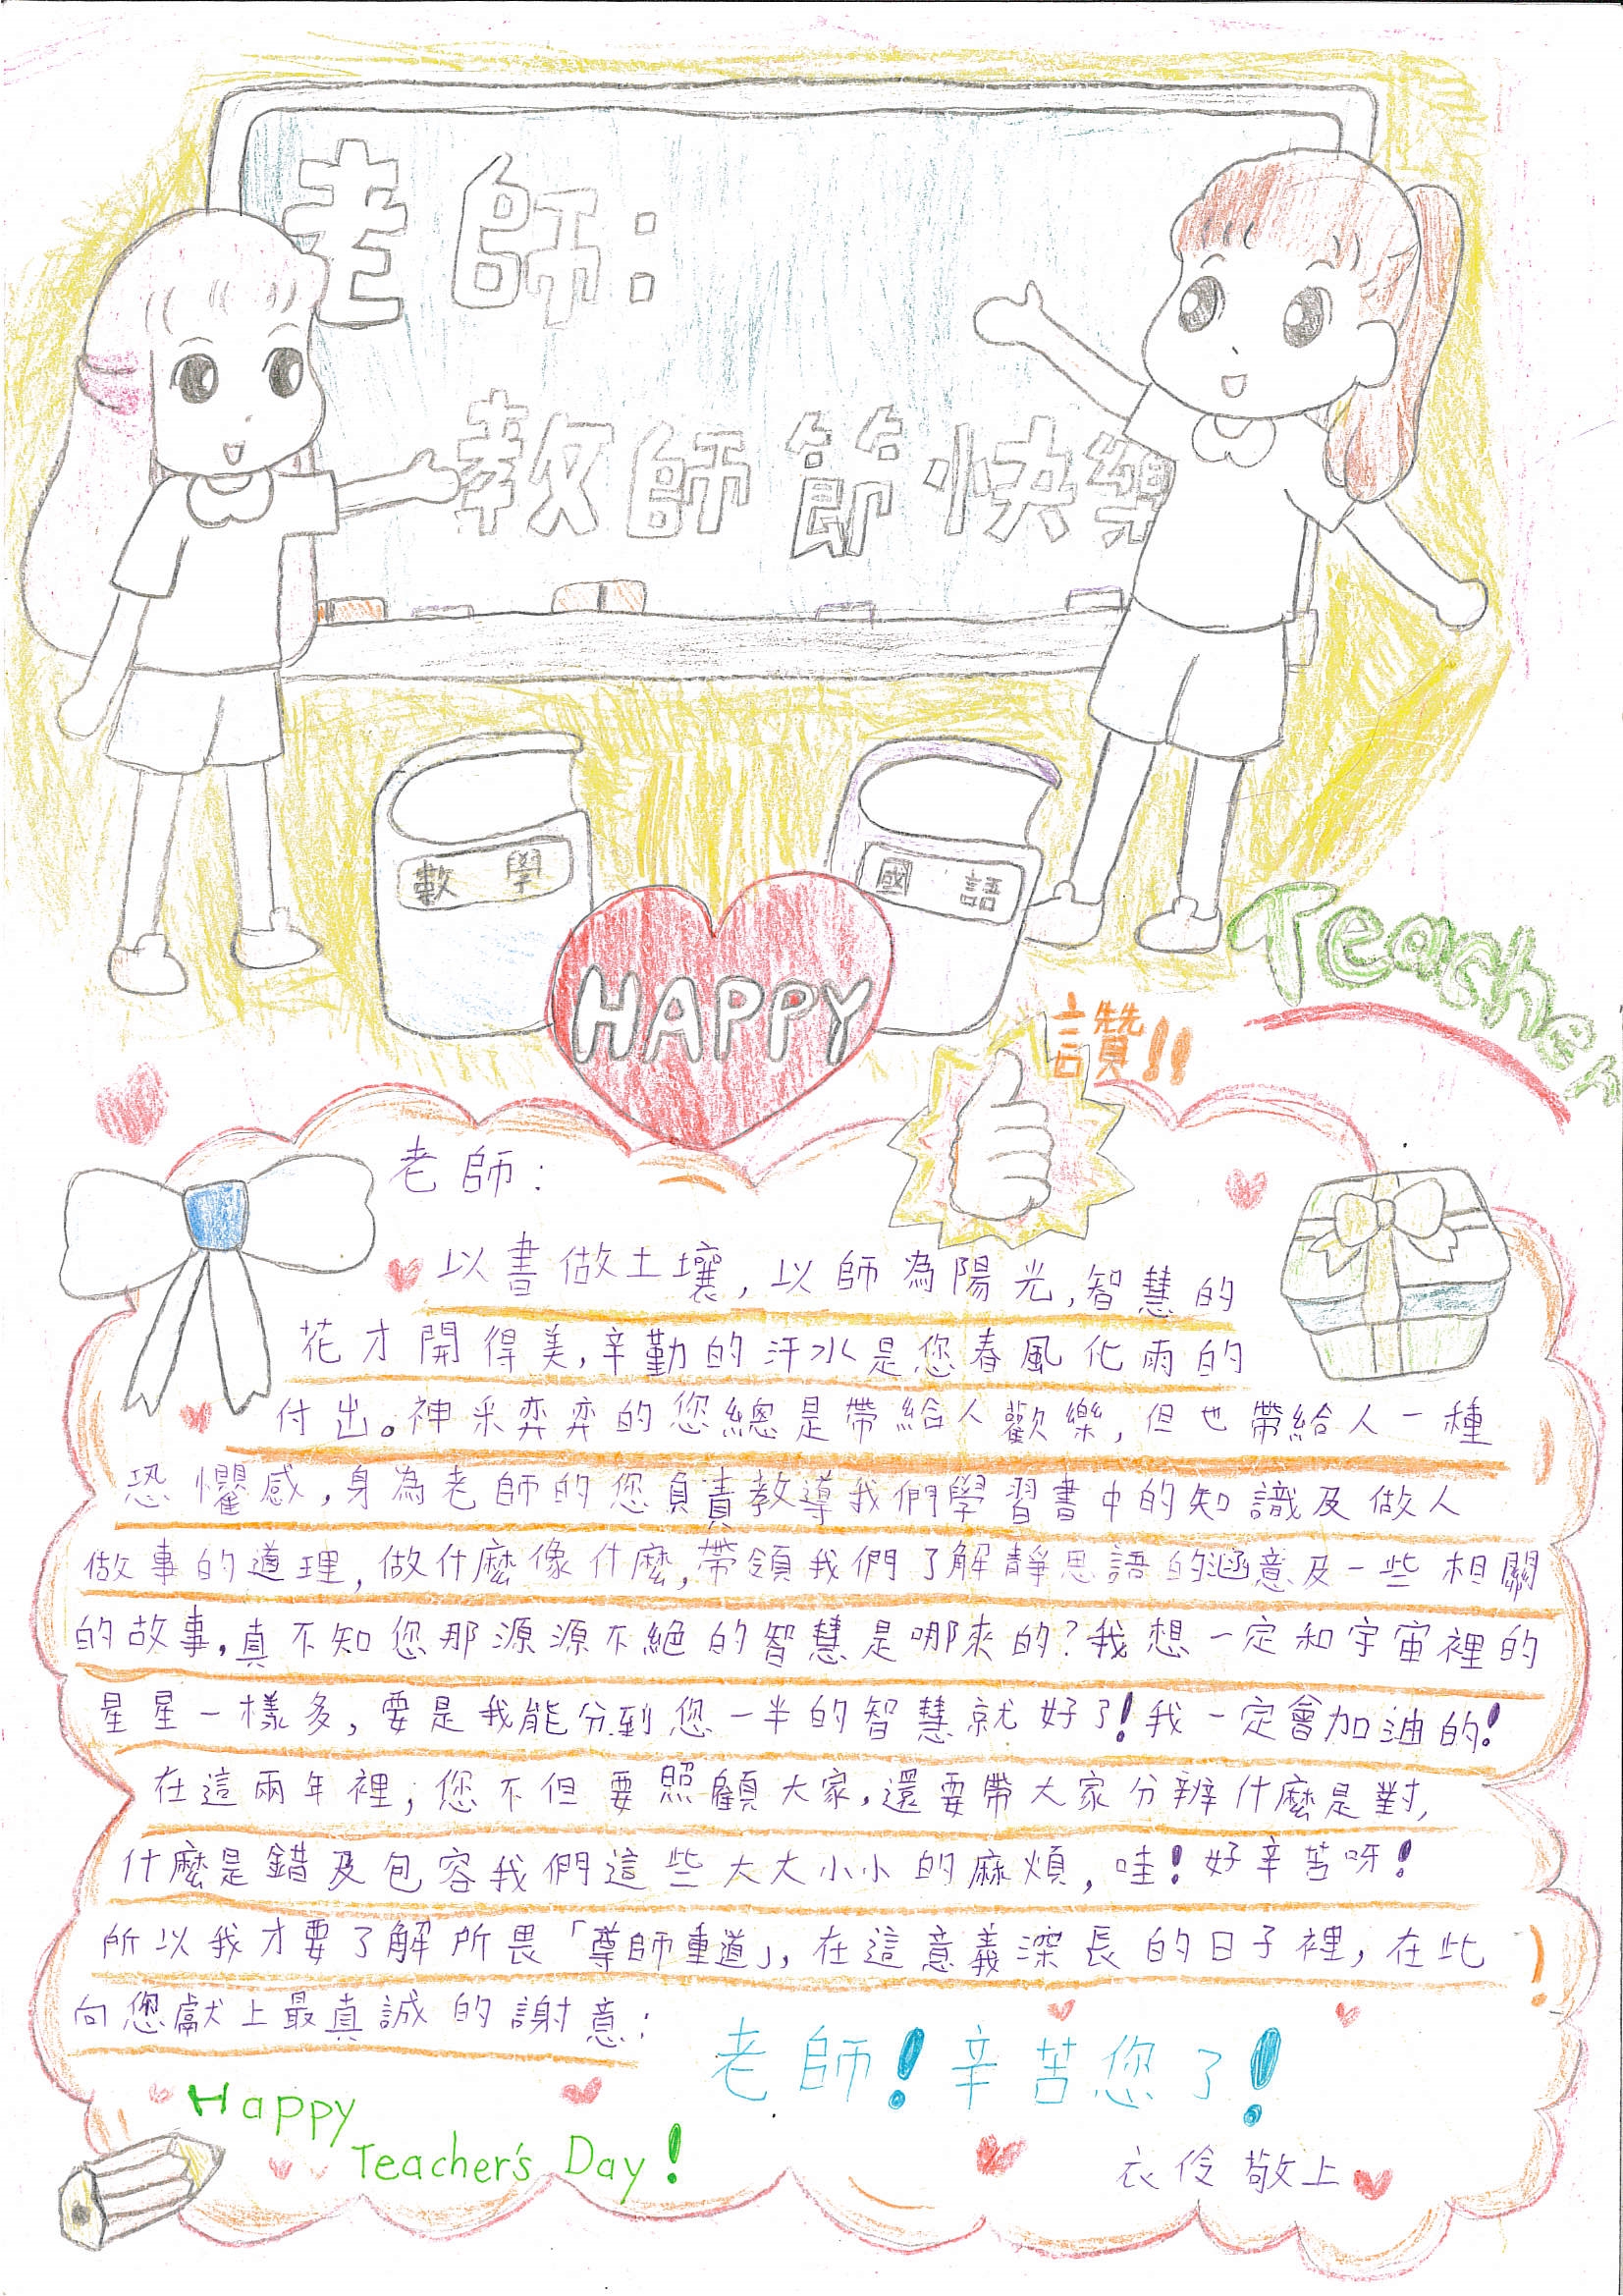 老師:
教師節快樂
數學
國語
HAPPY
讚!!
Teacher
老師:
以書做土壤,以師為陽光,智慧的
花才開得美,辛勤的汗水是您春風化雨的
付出。神采弈弈的您總是帶給人歡樂,但也帶給人一種
恐懼感,身為老師的您負責教導我們學習書中的知識及做人
做事的道理,做什麼像什麼,帶領我們了解靜思語的涵意及一些相關
的故事,真不知您那源源不絕的智慧是哪來的?我想一定和宇宙裡的
星星一樣多,要是我能分到您一半的智慧就好了!我一定會加油的!
在這兩年裡,您不但要照顧大家,還要帶大家分辨什麼是對,
什麼是錯及包容我們這些大大小小的麻煩,哇!好辛苦呀!
所以我才要了解所畏「尊師重道」,在這意義深長的日子裡,在此
向您獻上最真誠的謝意:
老師!辛苦您了!
Happy
Teacher's Day!
衣伶敬上